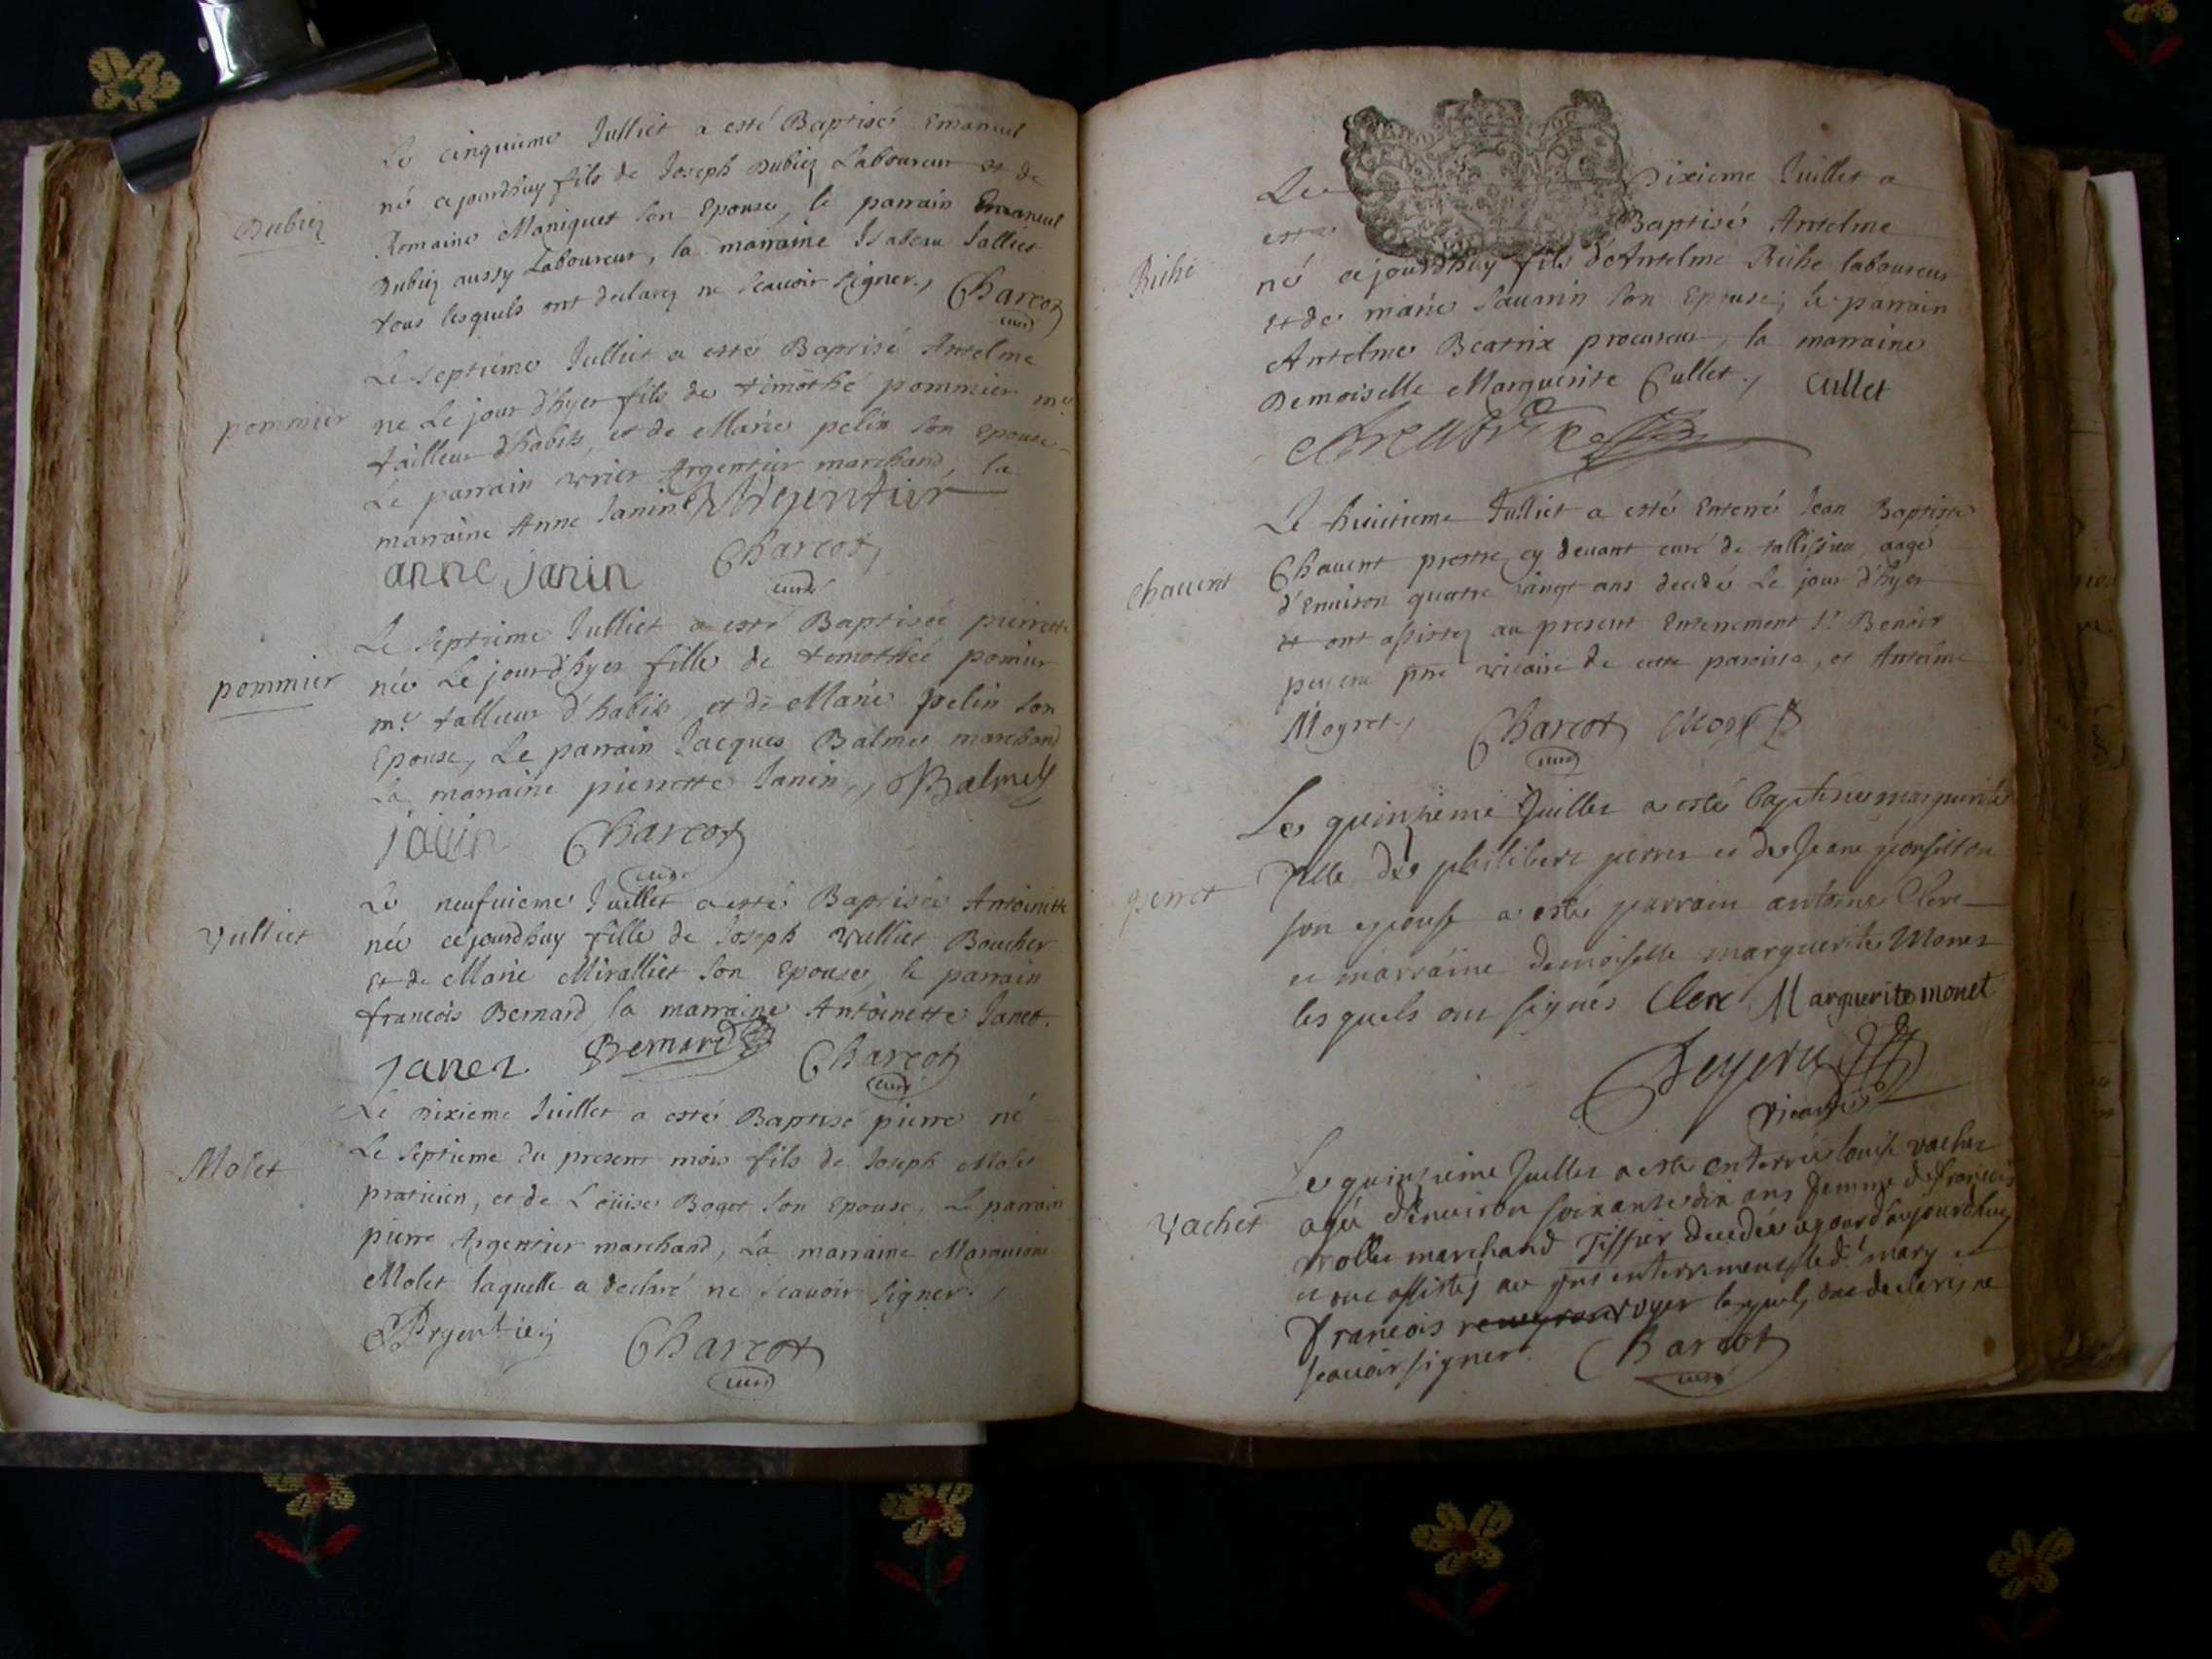 Le cinquieme Julliet a esté Baptisé Emanuel
Dubiez
né ce jourdhuy fils de Joseph Dubiez Laboureur et de
Romaine Maniguet son Epouse, le parrain Emanuel
Dubiez aussy Laboureur, la marraine Isabeau Jalliet
tous lesquels ont declarez ne scauoir signer., Charcot
curé
Le septieme Julliet a esté Baptisé Antelme
pommier
ne Le jour d'hyer fils de timothé pommier me
tailleur d'habits, et de Marie pelin son epouse
Le parrain Argentier marchand, la
marraine Anne Janin Argentier
anne janin Charcot
curé
Le septieme Julliet a esté Baptisée pierrette
pommier
née Le jour d'hyer fille de temothée pomier
me tallieur d'habits, et de Marie pelin son
Epouse, Le parrain Jacques Balmes marchand
La marraine pierrette Janin,, Balmes
janin Charcot
curé
Le neufuieme Juillet a esté Baptisée Antoinette
Vulliet
née cejourdhuy fille de Joseph Vulliet Boucher
et de Marie Miralliet son Epouse, le parrain
francois Bernard, la marraine Antoinette Janet.
Janet Bernard Charcot
curé
Le Dixieme Juillet a esté Baptisé pierre né
Molet
Le septieme du present mois fils de Joseph Molet
praticien, et de Loüise Boget son Epouse, Le parrain
pierre Argentier marchand, La marraine
Molet laquelle a declaré ne scauoir signer.,
Argentier Charcot
curé
Le Dixieme Juillet a
esté Baptisé Antelme
Riche
né cejourdhuy fils d'Antelme Riche laboureur
et de marie son Epouse; le parrain
Antelme Beatrix procureur, la marraine
Demoiselle Marguerite Cullet., Cullet
Le huitieme Julliet a esté Enterré Jean Baptiste
Chauent
Chauent prestre cy deuant curé de tallissieu, aagé
d'Enuiron quatre vingt ans decedé Le jour d'hyer
et ont assistez au present Enterrement Sr Benoit
peysere pbre vicaire de cette paroisse, et Antelme
Moyret., Charcot
curé
Le quinzieme Juillet a esté baptisée marguerite
perret
fille de philibert perret et de Jeane
son epouse a esté parrain antoine Clerc
et marraine demoiselle marguerite Monet
lesquels ont signés Clerc Marguerite monet
vicaire
Le quinzieme Juillet a esté enterrée louise vachet
Vachet
agée d'enuiron soixante dix ans femme de francois
marchand Tissier decedée aujourdhuy
et ont assistés au pnt enterrement led. mary et
francois royer lesquels ont declarés ne
scauoir signer. Charcot
curé